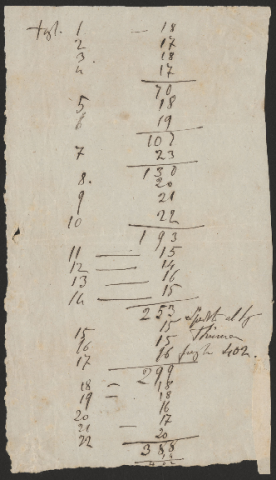 1 — 18
2 17
3. 18
4 17
70
5 18
6 19
107
7 23
130
8. 20
9 21
10 22
193
11 — 15
12 — 14
13 — 16
14 — 15
253
15 15
16 15
17 16 402.
299
18 – 18
19 – 18
20 16
21 – 17
22 20
388